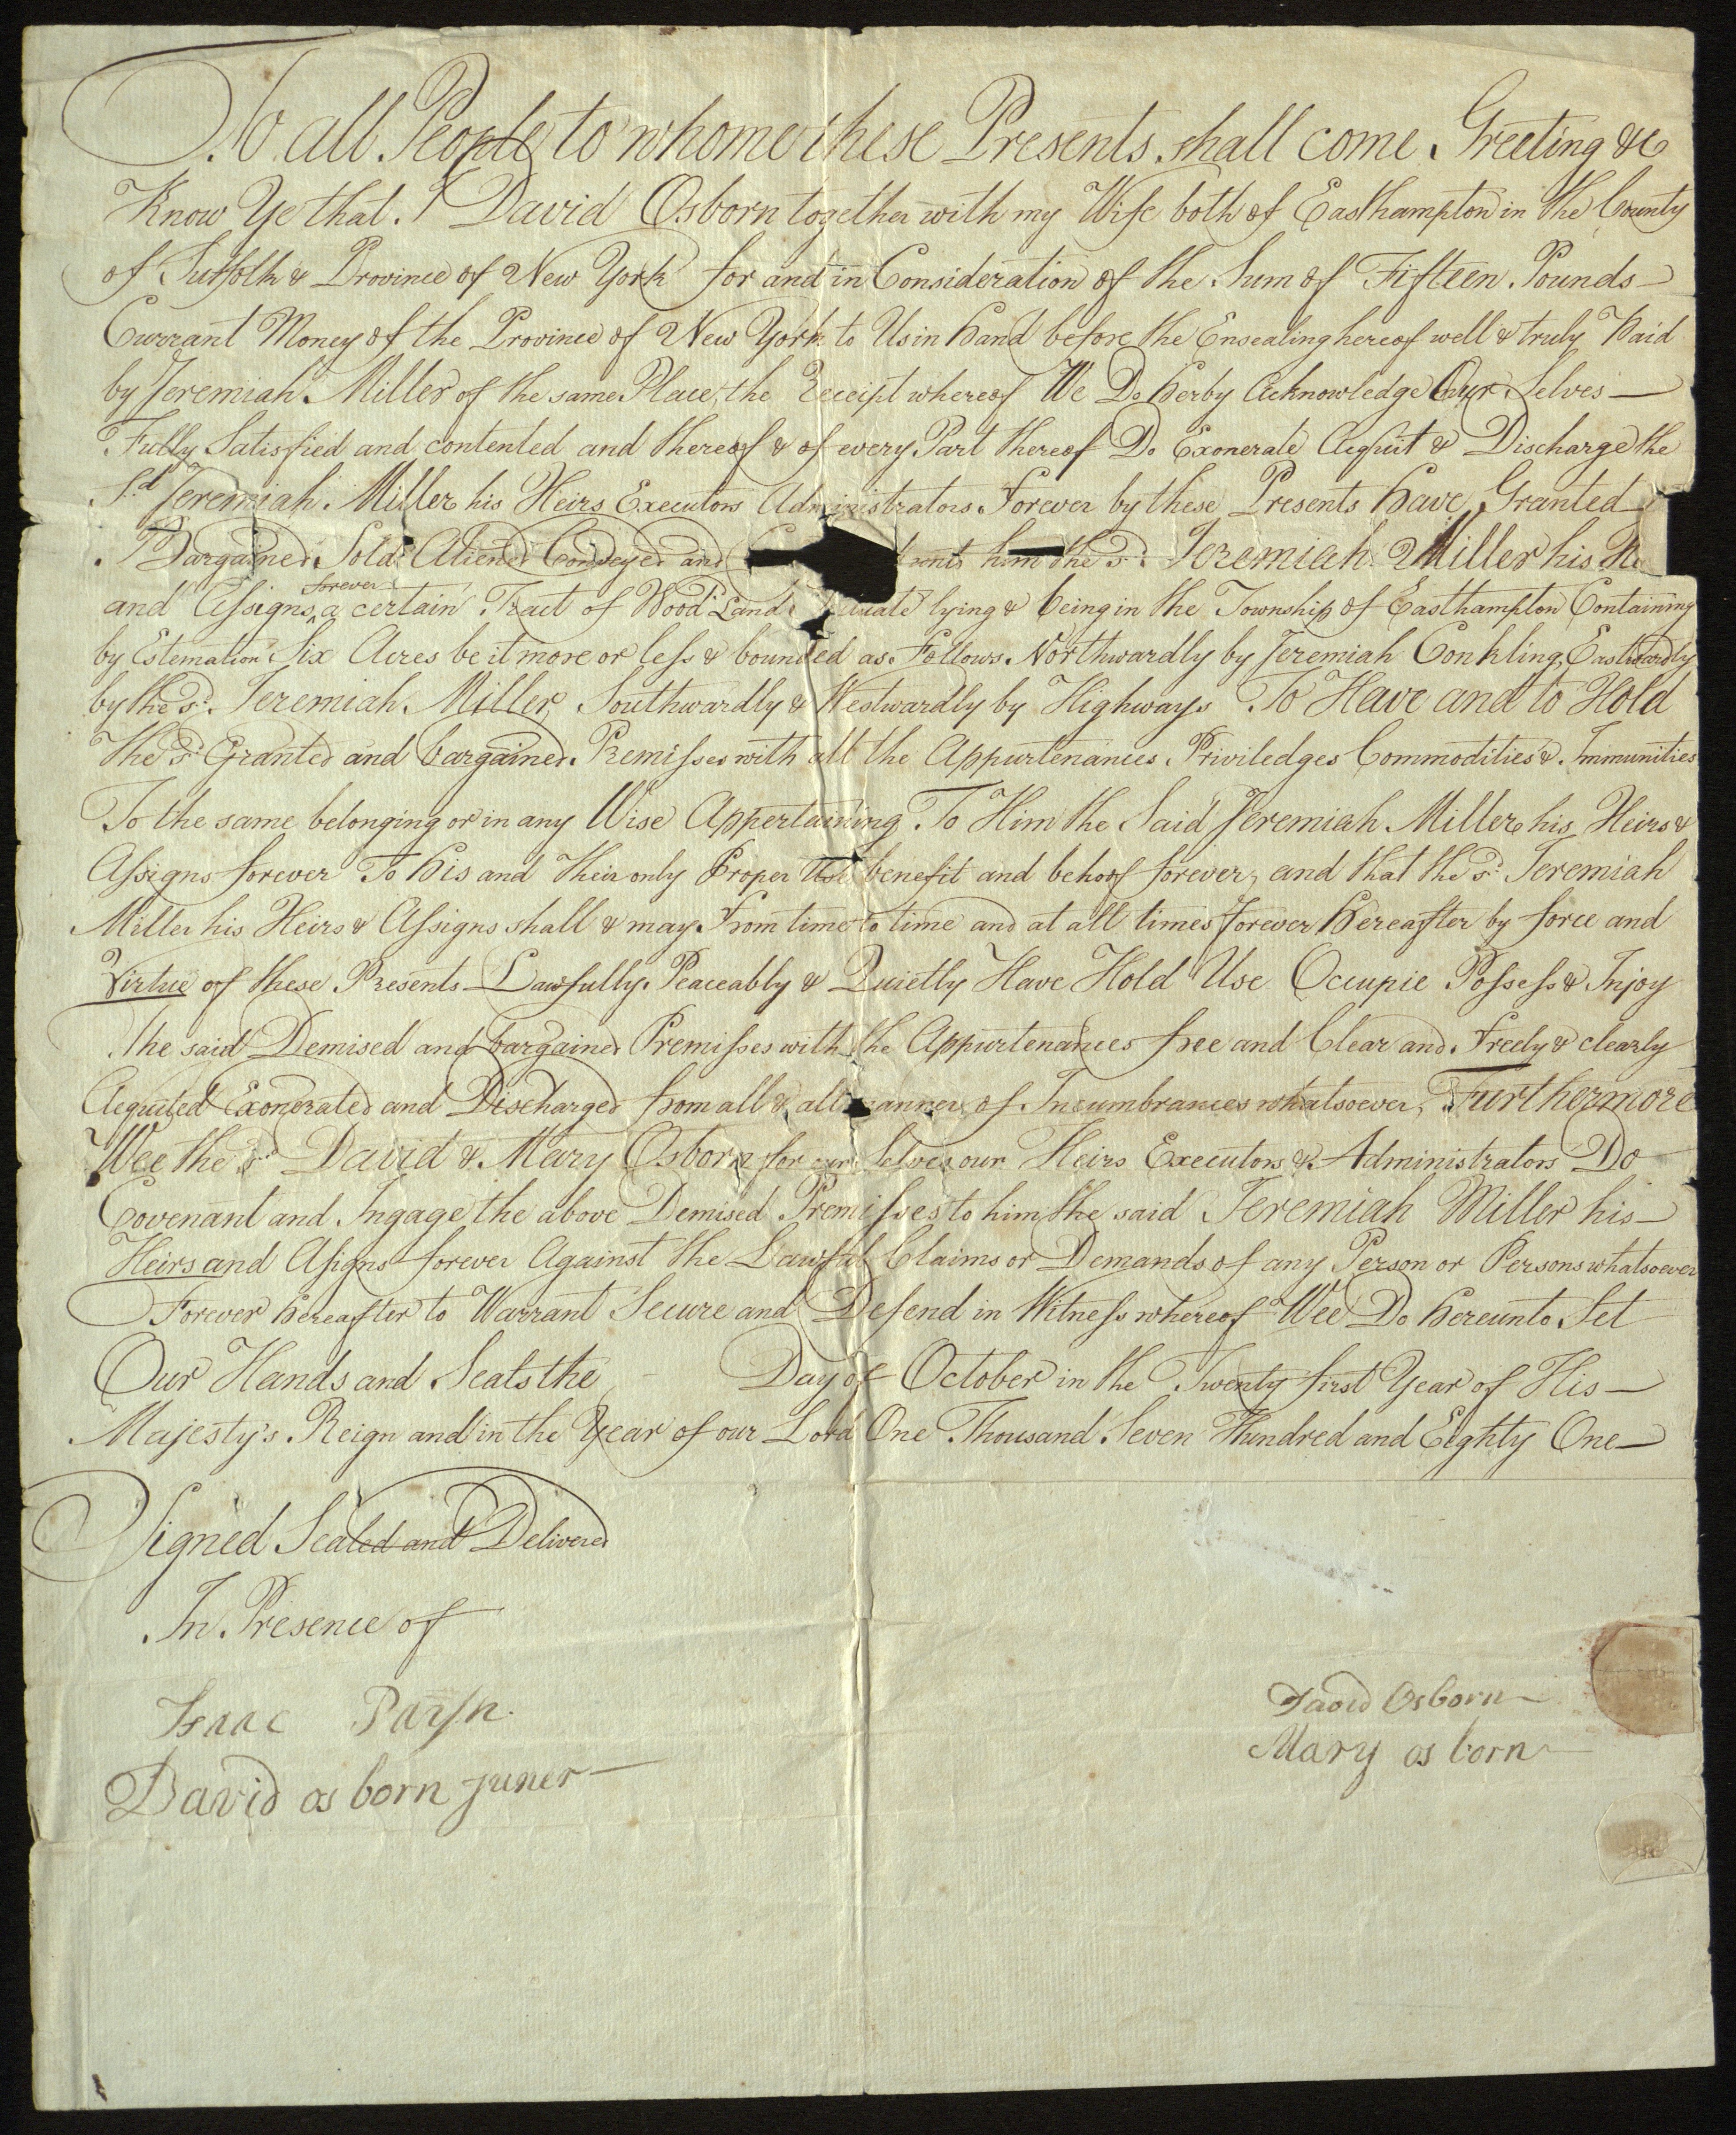 To all People to whome these Presents shall come Greeting &c
Know Ye that I David Osborn together with my Wife both of Easthampton in the County
of Suffolk & Province of New York for and in Consideration of the Sum of Fifteen Pounds
Currant Money of the Province of New York to Us in hand before the Ensealing hereof well & truly Paid
by Jeremiah Miller of the same Place, the Receipt whereof We Do herby Acknowledge Our Selves
Fully Satisfied and contented and thereof & of every Part thereof Do Exonerate Acquit & Discharge the
Sd Jeremiah Miller his Heirs Executors Administrators Forever by these Presents have Granted
Bargained Sold Aliened Conveyed and him the sd Jeremiah Miller his
and Assigns forever a certain Tract of Wood Land lying & being in the Township of Easthampton Containing
by Estemation Six Acres be it more or less & bounded as Follows Northwardly by Jeremiah Conkling, Eastwardly
by the sd Jeremiah Miller, Southwardly & Westwardly by Highways To Have and to Hold
The sd Granted and bargained Premisses with all the Appurtenances Priviledges Commodities & Immunities
To the same belonging or in any Wise Appertaining To Him the Said Jeremiah Miller his Heirs &
Assigns forever To his and Their only Proper Use benefit and behoof forever, and that the sd Jeremiah
Miller his Heirs & Assigns shall & may From time to time and at all times forever hereafter by force and
Virtue of these Presents Lawfully Peaceably & Quietly Have Hold Use Occupie Possess & Injoy
The said Demised and bargained Premisses with the Appurtenances free and Clear and Freely & clearly
Acquited Exonerated and Discharged from all & all manner of Incumbrances whatsoever, Furthermore
Wee the sd David & Mary Osborn for our Selves our Heirs Executors & Administrators Do
Covenant and Ingage the above Demised Premisses to him the said Jeremiah Miller his
Heirs and Asigns forever Against the Lawful Claims or Demands of any Person or Persons whatsoever
Forever hereafter to Warrant Secure and Defend in Witness whereof Wee Do hereunto Set
Our Hands and Seals the Day of October in the Twenty first Year of His
Majesty's Reign and in the Year of our Lord One Thousand Seven Hundred and Eighty One
Signed Sealed and Delivered
In Presence of
Isaac Paysn
David os born juner
David Osborn
Mary os born